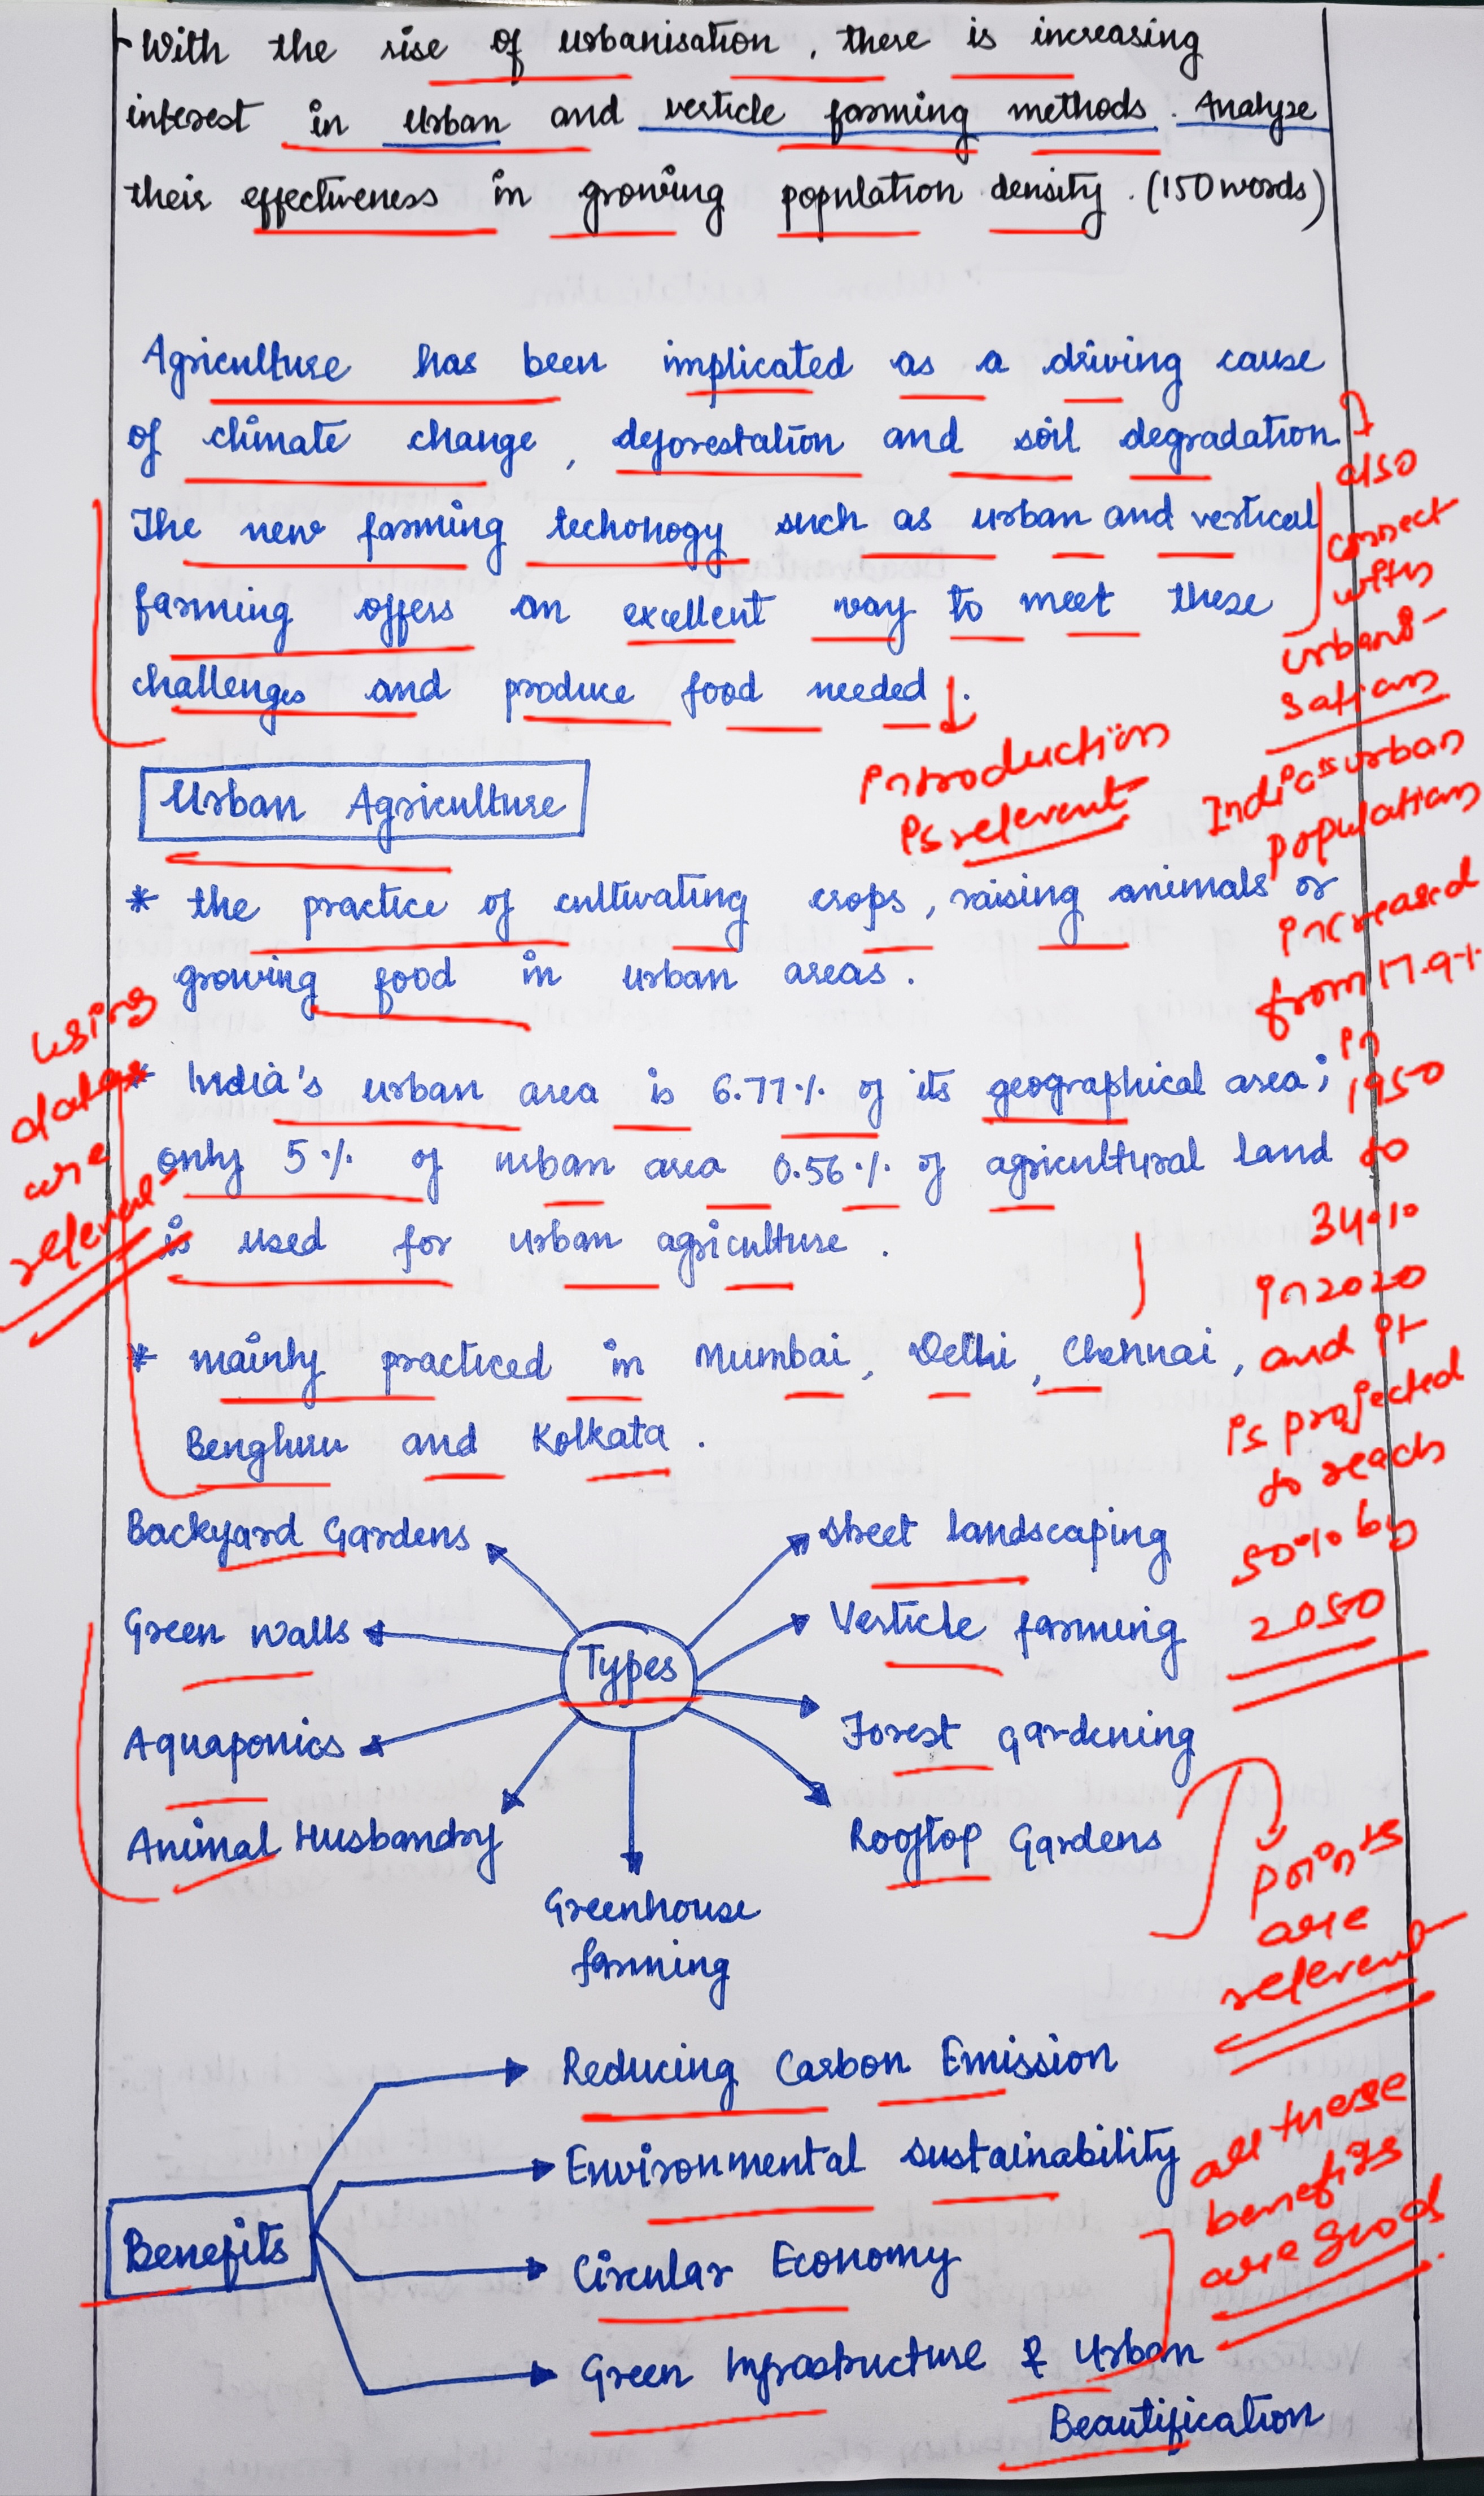 With the rise of urbanisation, there is increasing
interest in urban and verticle farming methods. Analyze
their effectiveness in growing population density. (150 words)
Agriculture has been implicated as a driving cause
of climate change, deforestation and soil degradation
The new farming techonogy such as urban and vertical
farming offers an excellent way to meet these
challenges and produce food needed.
also
connect
with
urbani-
sation
Introduction
is relevent
India's urban
population
increased
from 17.9%
in
1950
to
34%
in 2020
and it
is projected
to reach
50% by
2050
Urban Agriculture
* the practice of cultivating crops, raising animals or
growing food in urban areas.
using
datas
are
relevent
* India's urban area is 6.77% of its geographical area;
only 5% of urban area 0.56% of agricultural land
is used for urban agriculture.
* mainly practiced in Mumbai, Delhi, Chennai,
Bengluru and Kolkata.
Types
Backyard Gardens
Green Walls
Aquaponics
Animal Husbandry
Greenhouse
farming
Street landscaping
Verticle farming
Forest gardening
Rooftop Gardens
points
are
relevent
Benefits
Reducing Carbon Emission
Environmental sustainability
Circular Economy
Green Infrastructure & Urban
Beautification
all these
benefits
are good